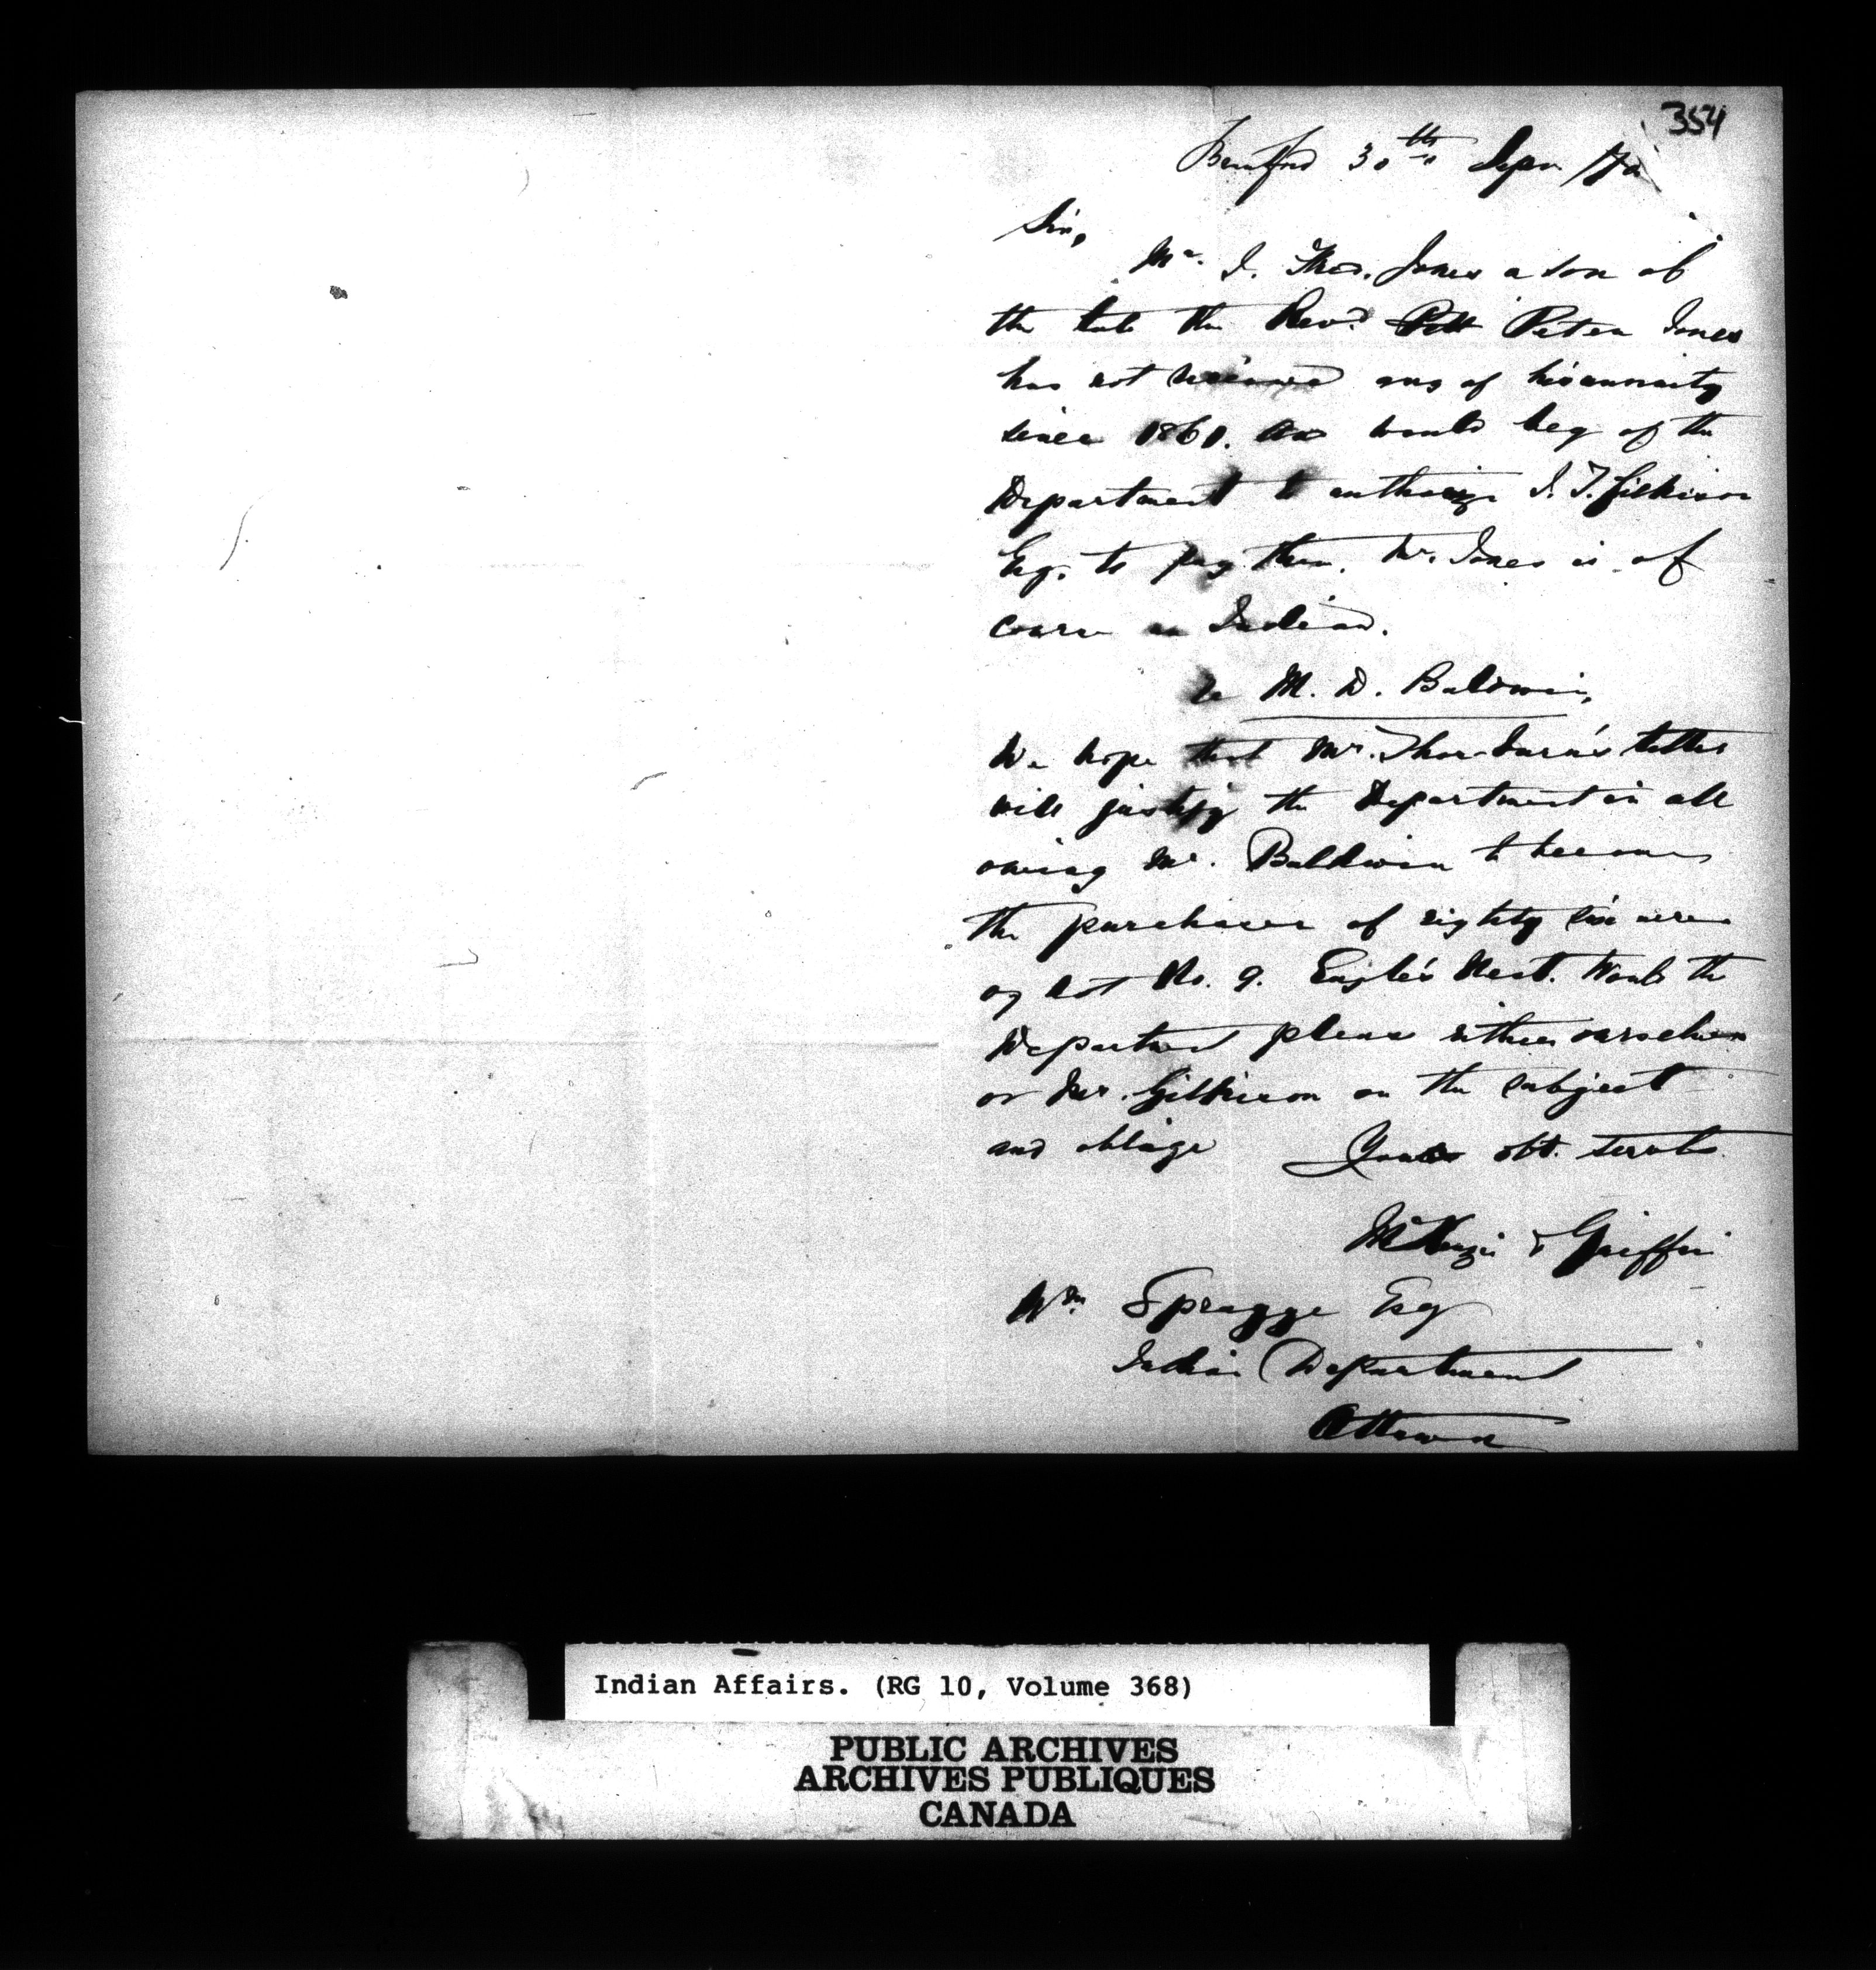 354
Brantford 30th Sepr /70
Sir,
Mr. I. Thos. Jones a son of
the late the Revd. Pett Peter Jones
has not received any of his annuity
since 1861. and would beg of the
Department to authorize J. T. Gilkison
Esq. to pay them. Mr. Jones is of
course an Indian.
Re M. D. Baldwin,
We hope that Mr. letter
will justify the Department in all
owing Mr. Baldwin to become
the purchaser of eighty six acres
of Lot No. 9. Eagle's Nest. Would the
Department please either ourselves
or Mr. Gilkison on the subject
and oblige Yours obt. servts
McKenzie & Griffin
Wm. Spragge Esq
Indian Department
Ottawa
Indian Affairs. (RG 10, Volume 368)
PUBLIC ARCHIVES
ARCHIVES PUBLIQUES
CANADA